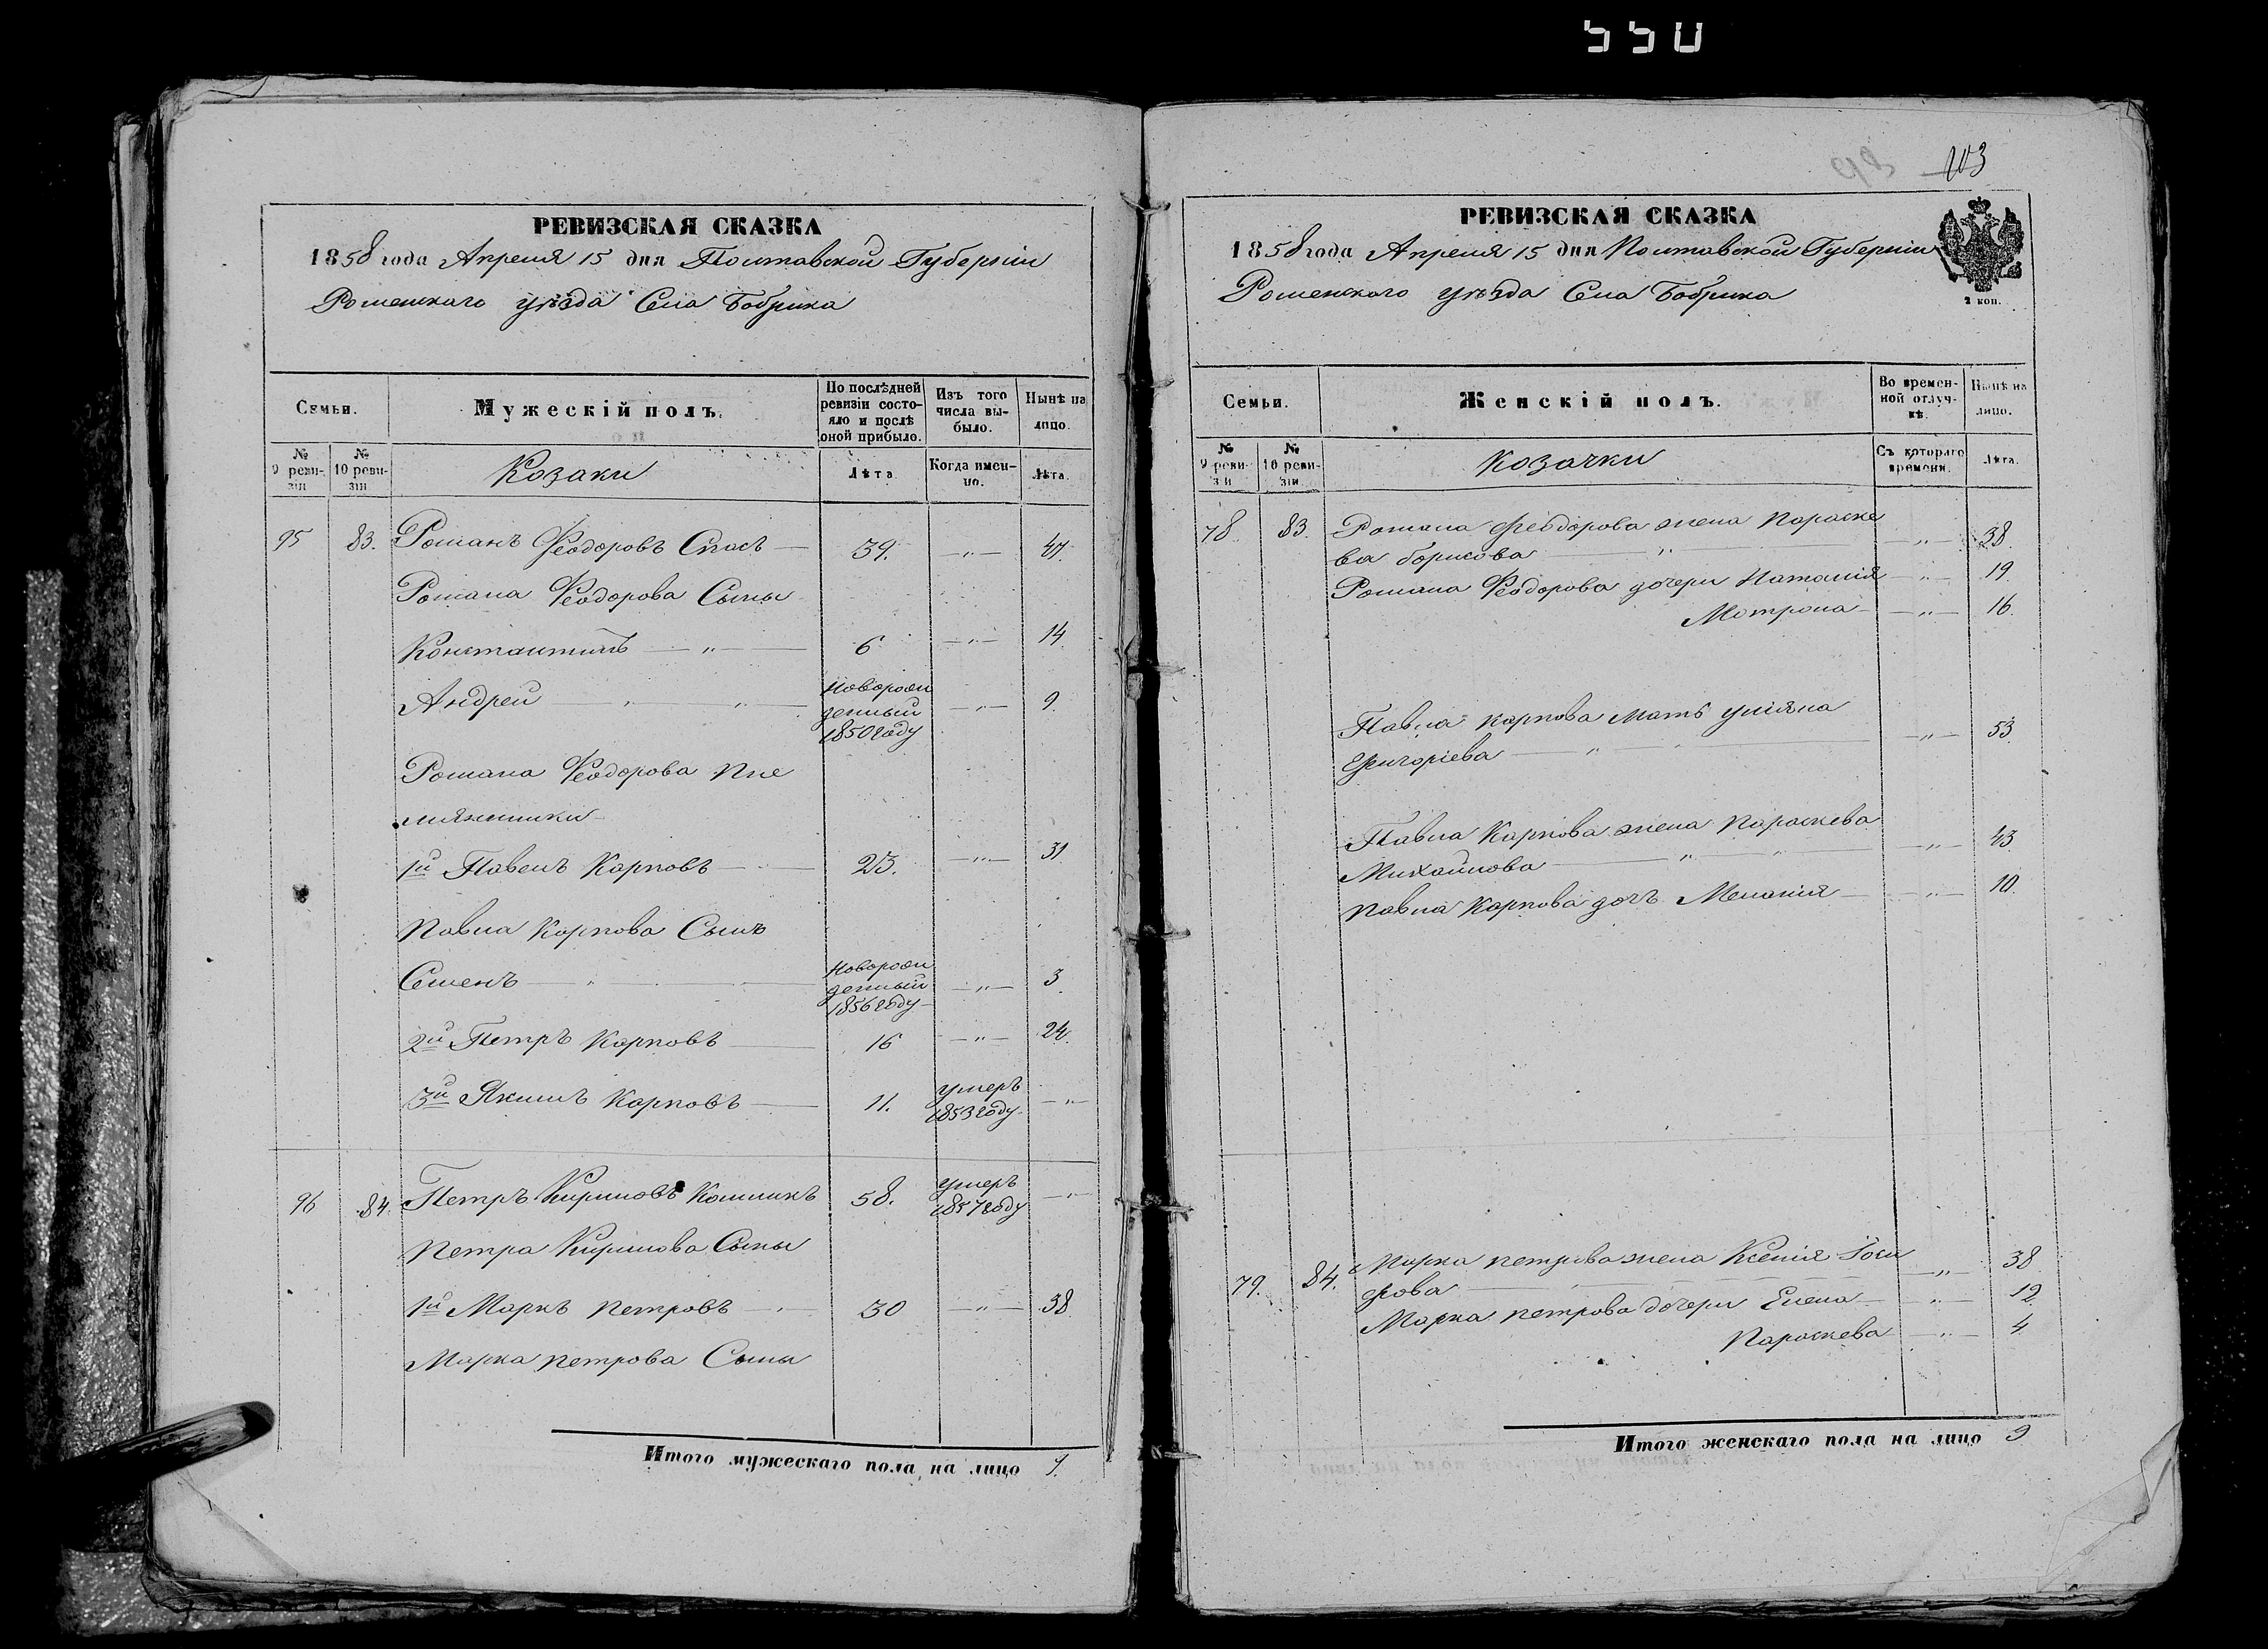 550
103
РЕВИЗСКАЯ СКАЗКА
1858 года Апреля 15 дня Полтавской Губерніи
Роменскаго уѣзда Села Бобрика
Семьи.
Мужескій полъ.
По послѣдней ревизіи состояло и послѣ оной прибыло.
Изъ того числа выбыло.
Нынѣ на лицо.
№ 9 ревизіи
№ 10 ревизіи
Козаки
Лѣта
Когда именно.
Лѣта.
95 83. Романъ Феодоровъ Спасъ — 39. —„— 47.
Романа Феодорова Сыны
Константинъ —„— 6 —„— 14
Андрей —„— Новорож
денный
1850 году —„— 9.
Романа Феодорова Пле
мянники
1й Павелъ Карповъ — 23. —„— 31
Павла Карпова Сынъ
Семенъ —„— Новорож
денный
1856 году —„— 3
2й Петръ Карповъ — 16 —„— 24.
3й Якимъ Карповъ — 11. умеръ
1853 году —„—
96 84. Петръ Кириловъ 58. умеръ
1857 году —„—
Петра Кирилова Сыны
1й Марко Петровъ — 30 —„— 38
Марка Петрова Сыны
Итого мужескаго пола на лицо 7.
РЕВИЗСКАЯ СКАЗКА
1858 года Апреля 15 дня Полтавской Губерніи
Роменского уѣзда Села Бобрика
2 коп.
Семьи.
Женскій полъ.
Во временной отлучкѣ.
Нынѣ на лицо.
№ 9 ревизіи
№ 10 ревизіи
Козачки
Съ котораго времени.
Лѣта.
78. 83. Романа Феодорова жена Параске
ва Борисова —„— 38.
Романа Феодорова дочери Наталія —„— 19.
Мотрона —„— 16.
Павла Карпова мать Уліяна
Григоріева —„— 53.
Павла Карпова жена Параскева
Михайлова —„— 43
Павла Карпова дочь Меланія —„— 10.
79. 84. Марка Петрова жена Ксенія
—„— 38
Марка Петрова дочери Елена —„— 12
Параскева —„— 4
Итого женскаго пола на лицо 9